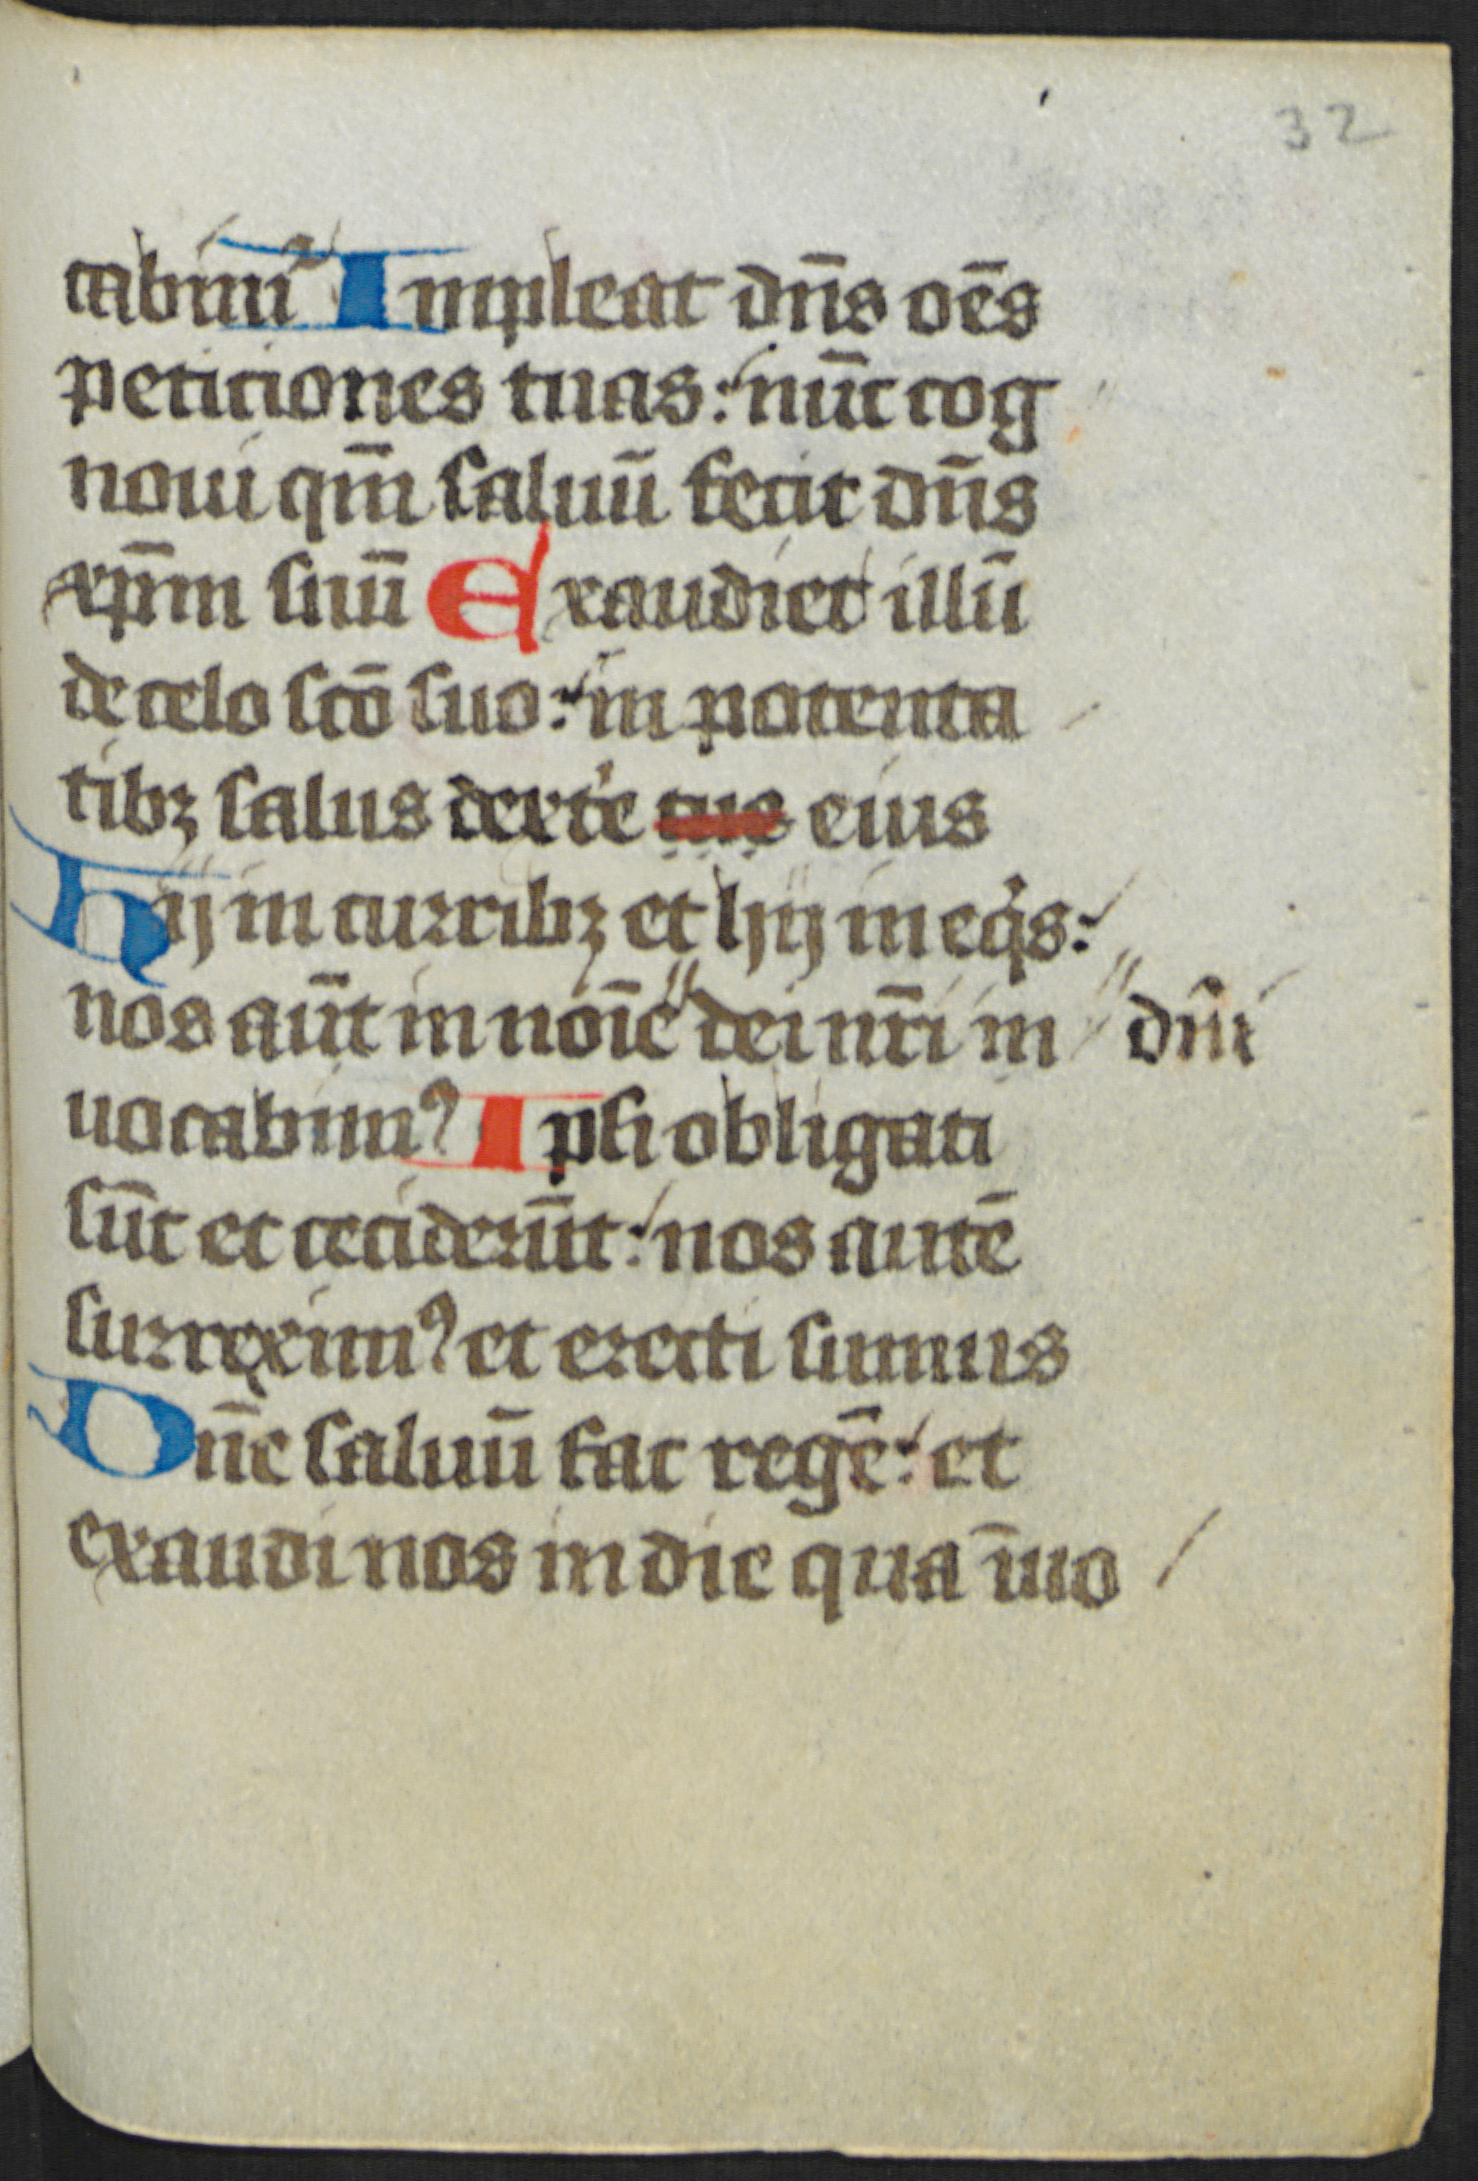 32
cabimꝰ Impleat dn̄s oēs
peticiones tuas: nūc cog
noui qm̄ saluū fecit dn̄s
xp̄m suū Exaudiet illū
de celo scō suo: in potenta
tibꝫ salus dext'e tue eius
Hij in curribꝫ et hij in eqⁱs:
nos aūt in noīe dei nr̄i in dn̄i
uocabimꝰ Ipsi obligati
sūt et ceciderūt: nos autē
surreximꝰ et erecti sumus
Dn̄e saluū fac regē: et
exaudi nos in die qua īuo